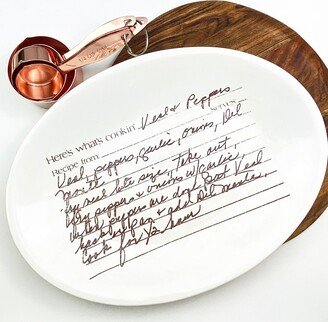 Here's what's cookin' Veal & Peppers
Recipe from: SERVES
Veal, peppers, garlic, onions, Del
Monte
Fry veal bite size, Take out
Fry peppers & onions w garlic,
when peppers are done. Put Veal
back in pan & add Del monte,
cook for ½ hour